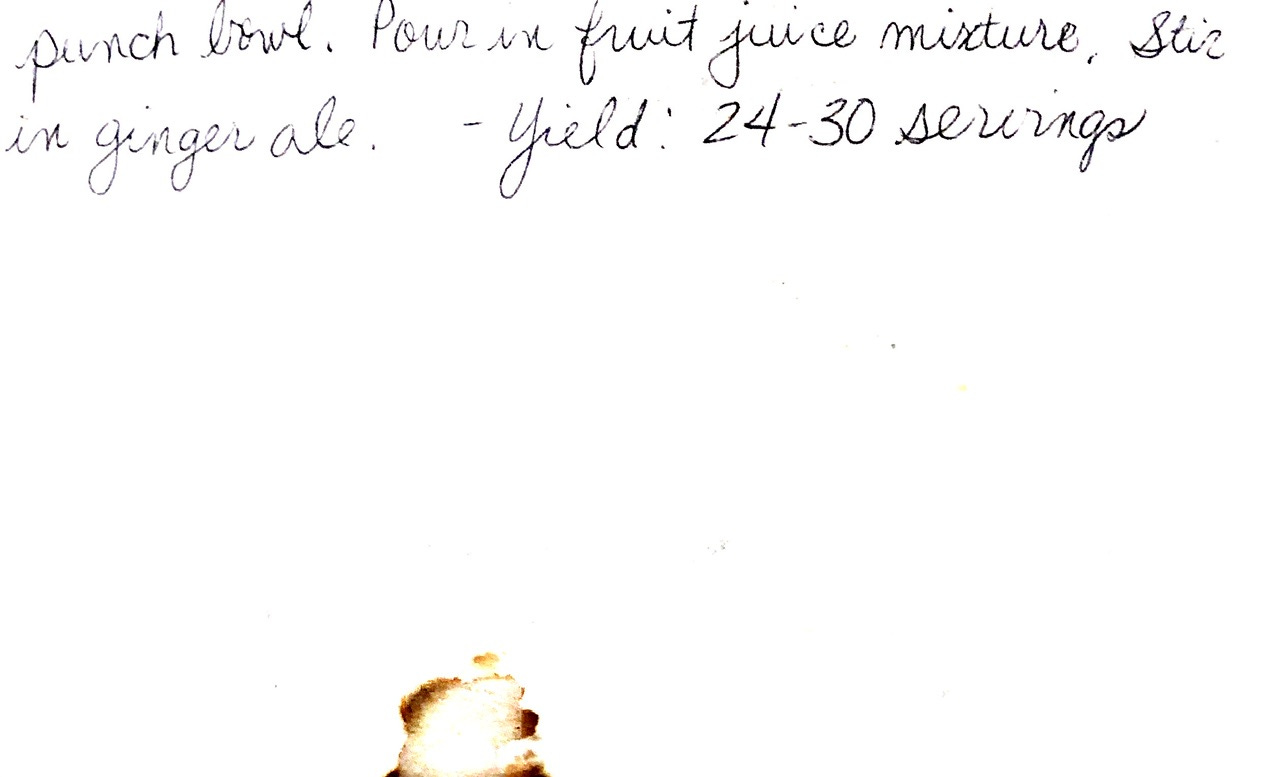 punch bowl. Pour in fruit juice mixture. Stir
in ginger ale. - Yield: 24-30 servings